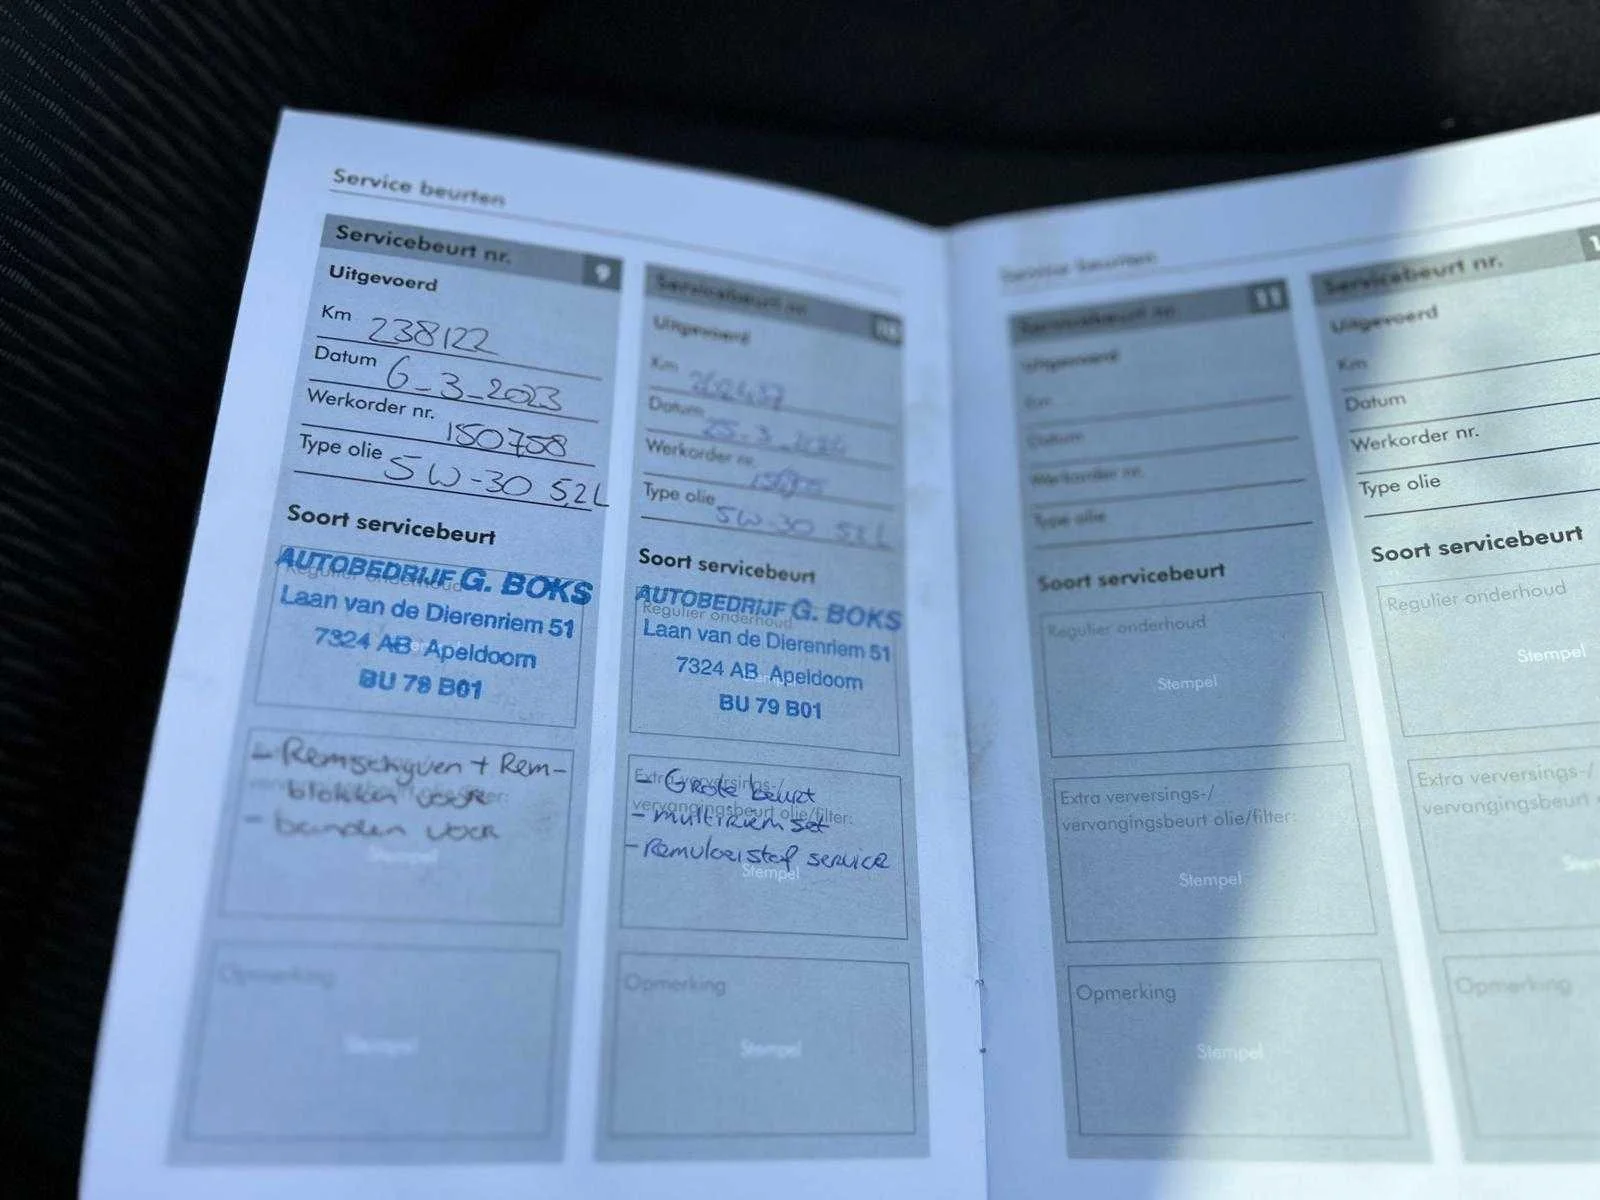 Service beurten
Servicebeurt nr. 9
Uitgevoerd
Km 238122
Datum 6-3-2023
Werkorder nr. 150758
Type olie 5W-30 5,2L
Soort servicebeurt
Regulier onderhoud
AUTOBEDRIJF G. BOKS
Laan van de Dierenriem 51
7324 AB Apeldoorn
BU 79 B01
- Remschijven + Rem-
blokken voor
- banden voor
Stempel
Opmerking
Stempel
Servicebeurt nr. 10
Uitgevoerd
Km
Datum 25-3-2024
Werkorder nr.
Type olie 5W-30 5,2L
Soort servicebeurt
AUTOBEDRIJF G. BOKS
Regulier onderhoud
Laan van de Dierenriem 51
7324 AB Apeldoorn
BU 79 B01
Extra verversings-/
- Grote beurt
vervangingsbeurt olie/filter:
- multiriem set
- Remvloeistof service
Stempel
Opmerking
Stempel
Service beurten
Servicebeurt nr. 11
Uitgevoerd
Km
Datum
Werkorder nr.
Type olie
Soort servicebeurt
Regulier onderhoud
Stempel
Extra verversings-/
vervangingsbeurt olie/filter:
Stempel
Opmerking
Stempel
Servicebeurt nr.
Uitgevoerd
Km
Datum
Werkorder nr.
Type olie
Soort servicebeurt
Regulier onderhoud
Stempel
Extra verversings-/
vervangingsbeurt
Opmerking